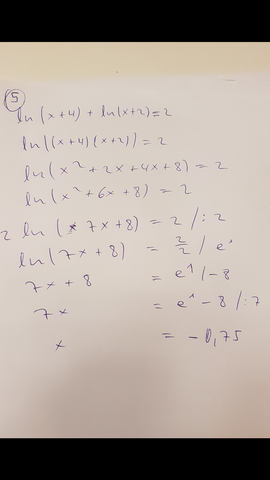 5
ln(x+4) + ln(x+2) = 2
ln((x+4)(x+2)) = 2
ln(x² + 2x + 4x + 8) = 2
ln(x² + 6x + 8) = 2
2 ln(7x + 8) = 2 / : 2
ln(7x + 8) = 2/2 / e^
7x + 8 = e¹ / -8
7x = e¹ - 8 / : 7
x = -0,75